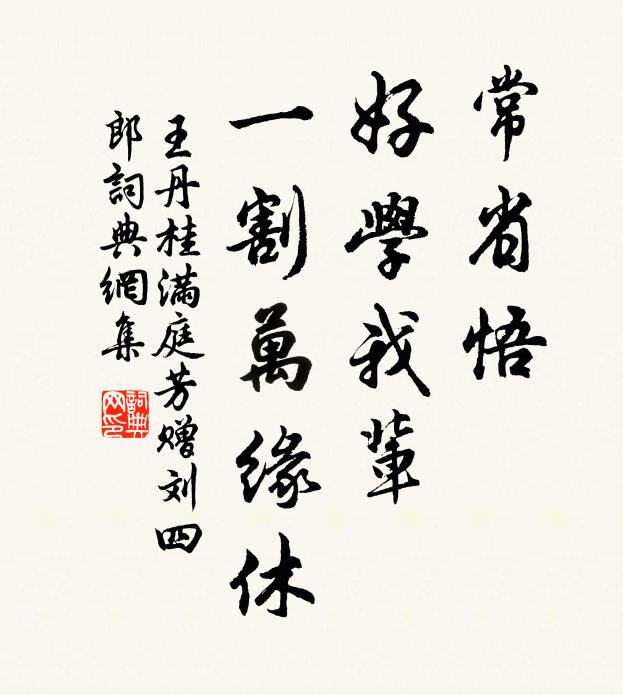 常省悟
好學我輩
一割萬緣休
王丹桂滿庭芳赠刘四
郎詞典網集
詞典
网印